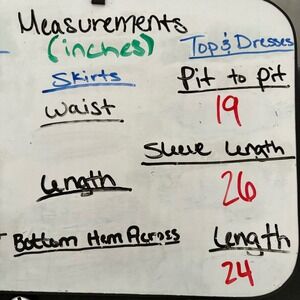 Measurements
(inches)
Skirts
Waist
Length
Bottom Hem Across
Top & Dresses
Pit to pit
19
Sleeve Length
26
Length
24